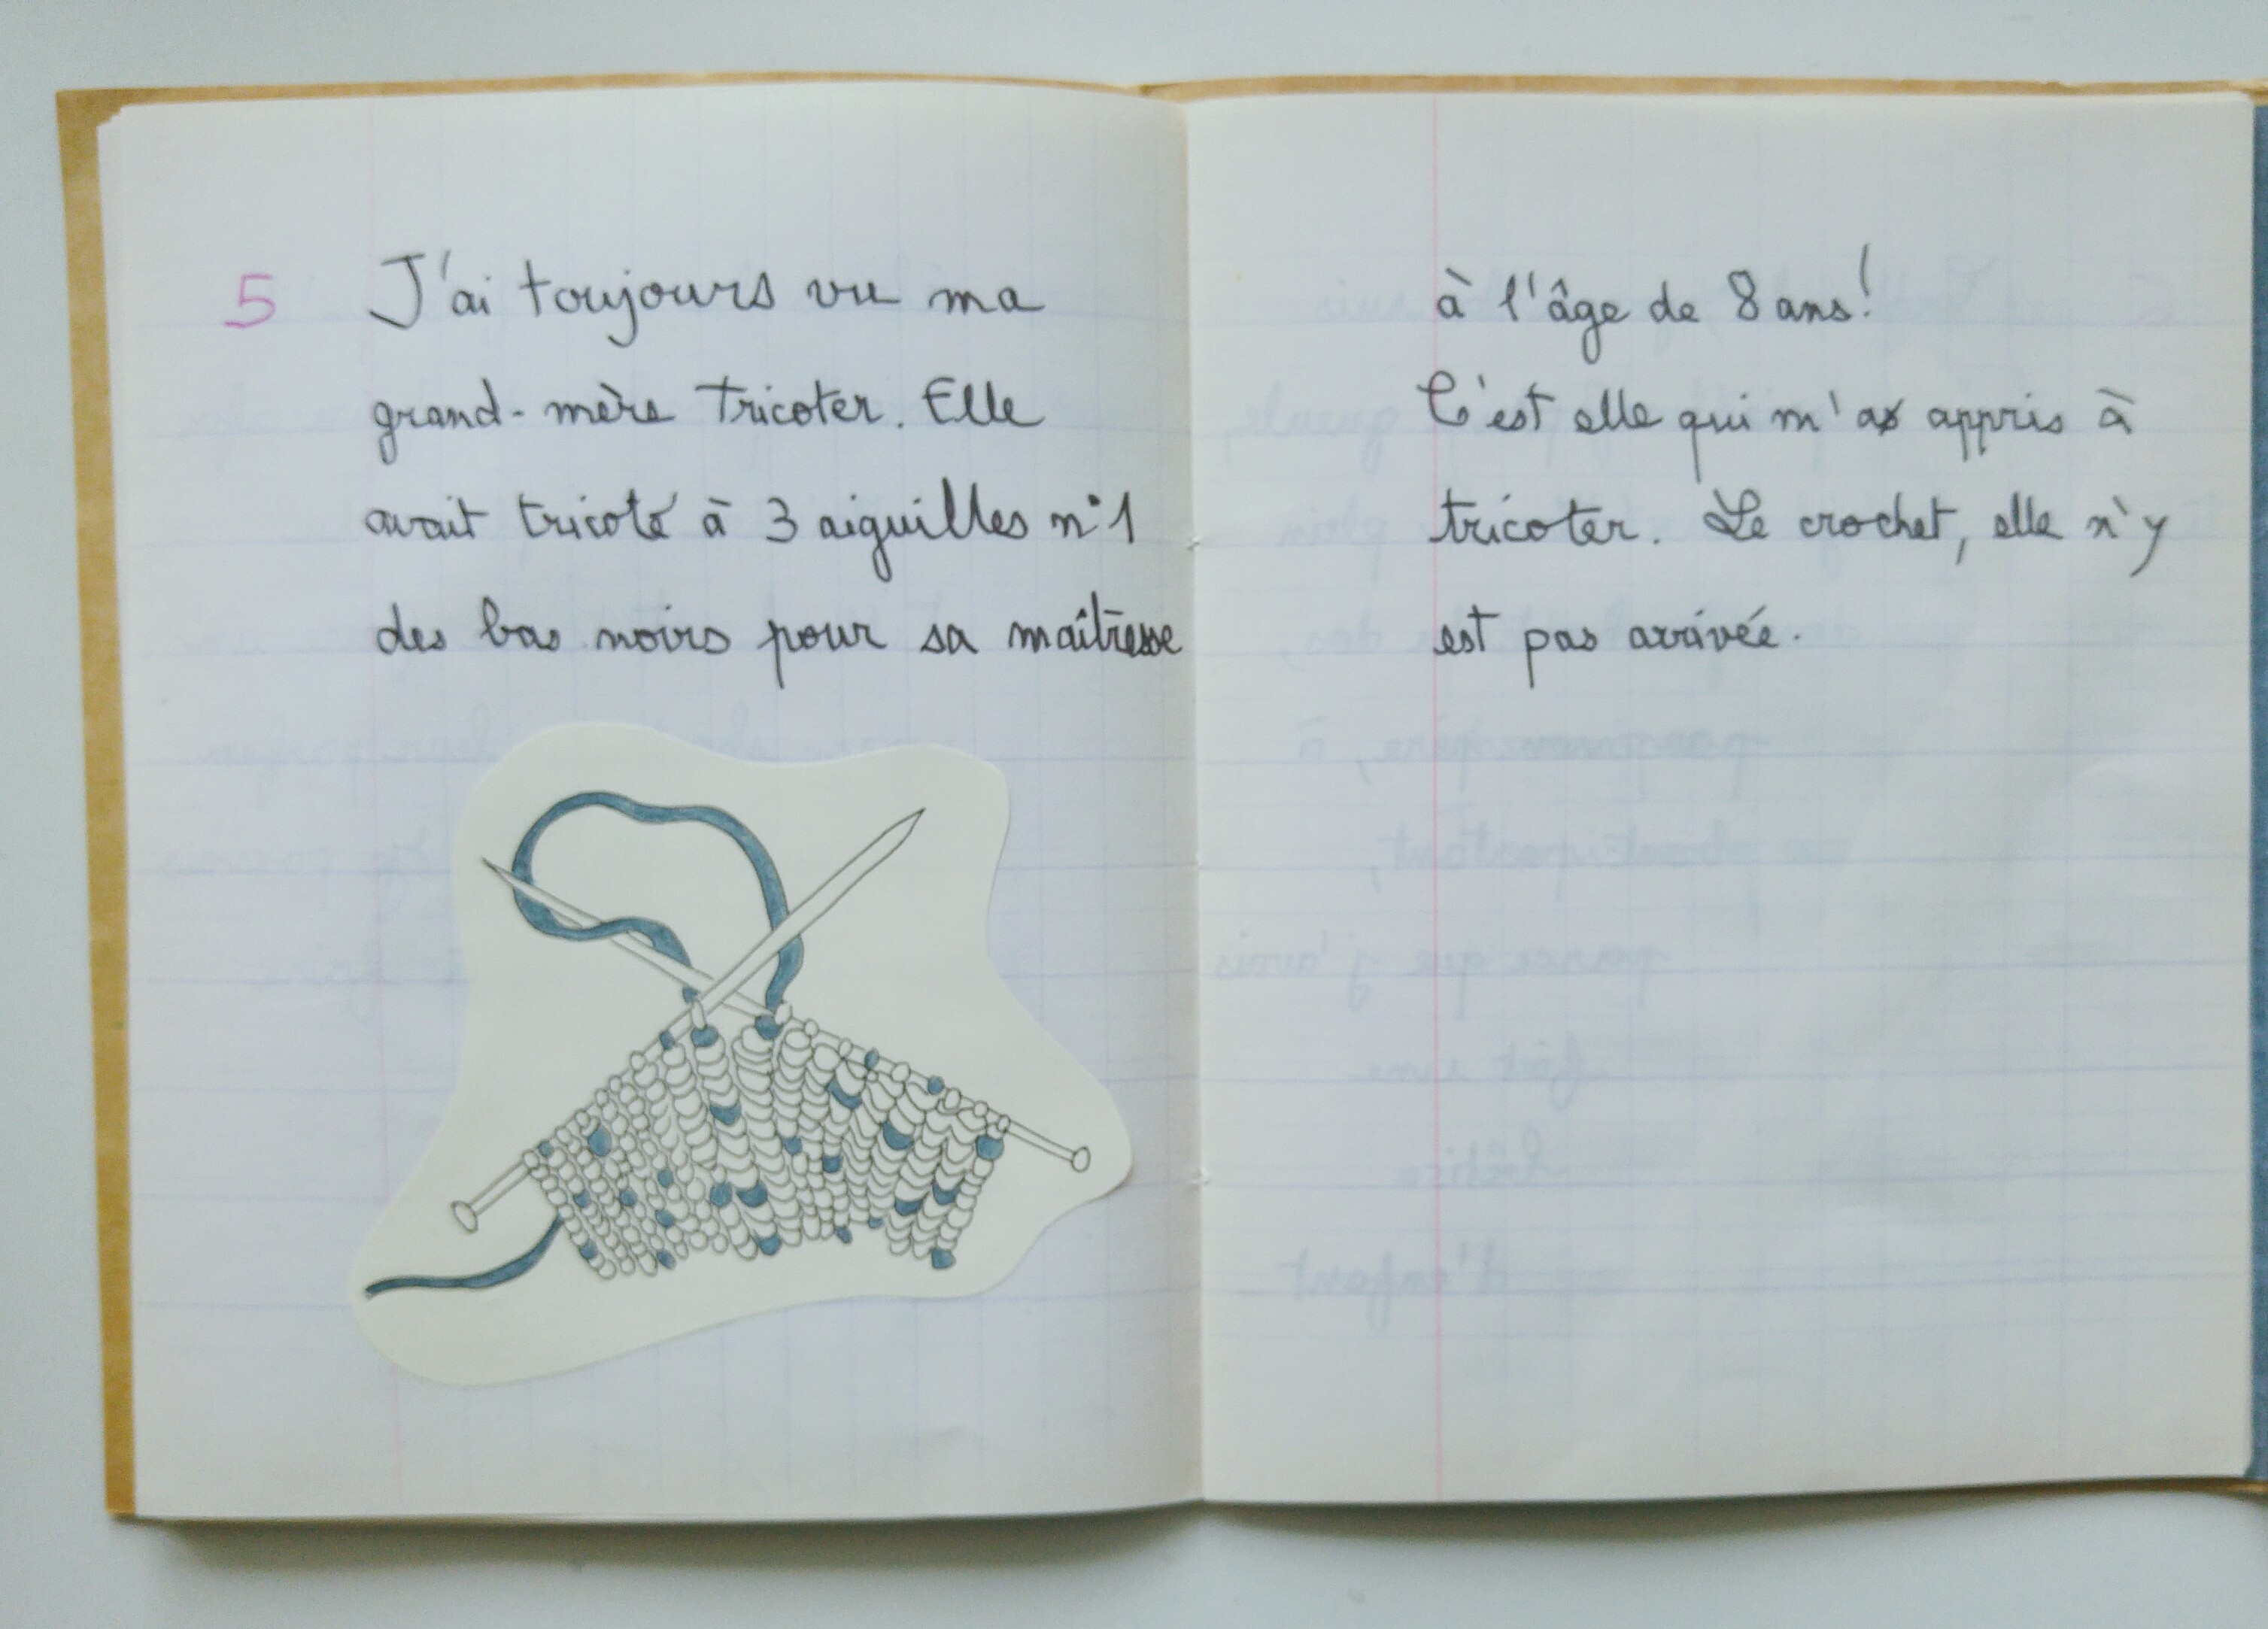 5 J'ai toujours vu ma
grand-mère tricoter. Elle
avait tricoté à 3 aiguilles n°1
des bas noirs pour sa maîtresse
à l'âge de 8 ans!
C'est elle qui m'a appris à
tricoter. Le crochet, elle n'y
est pas arrivée.